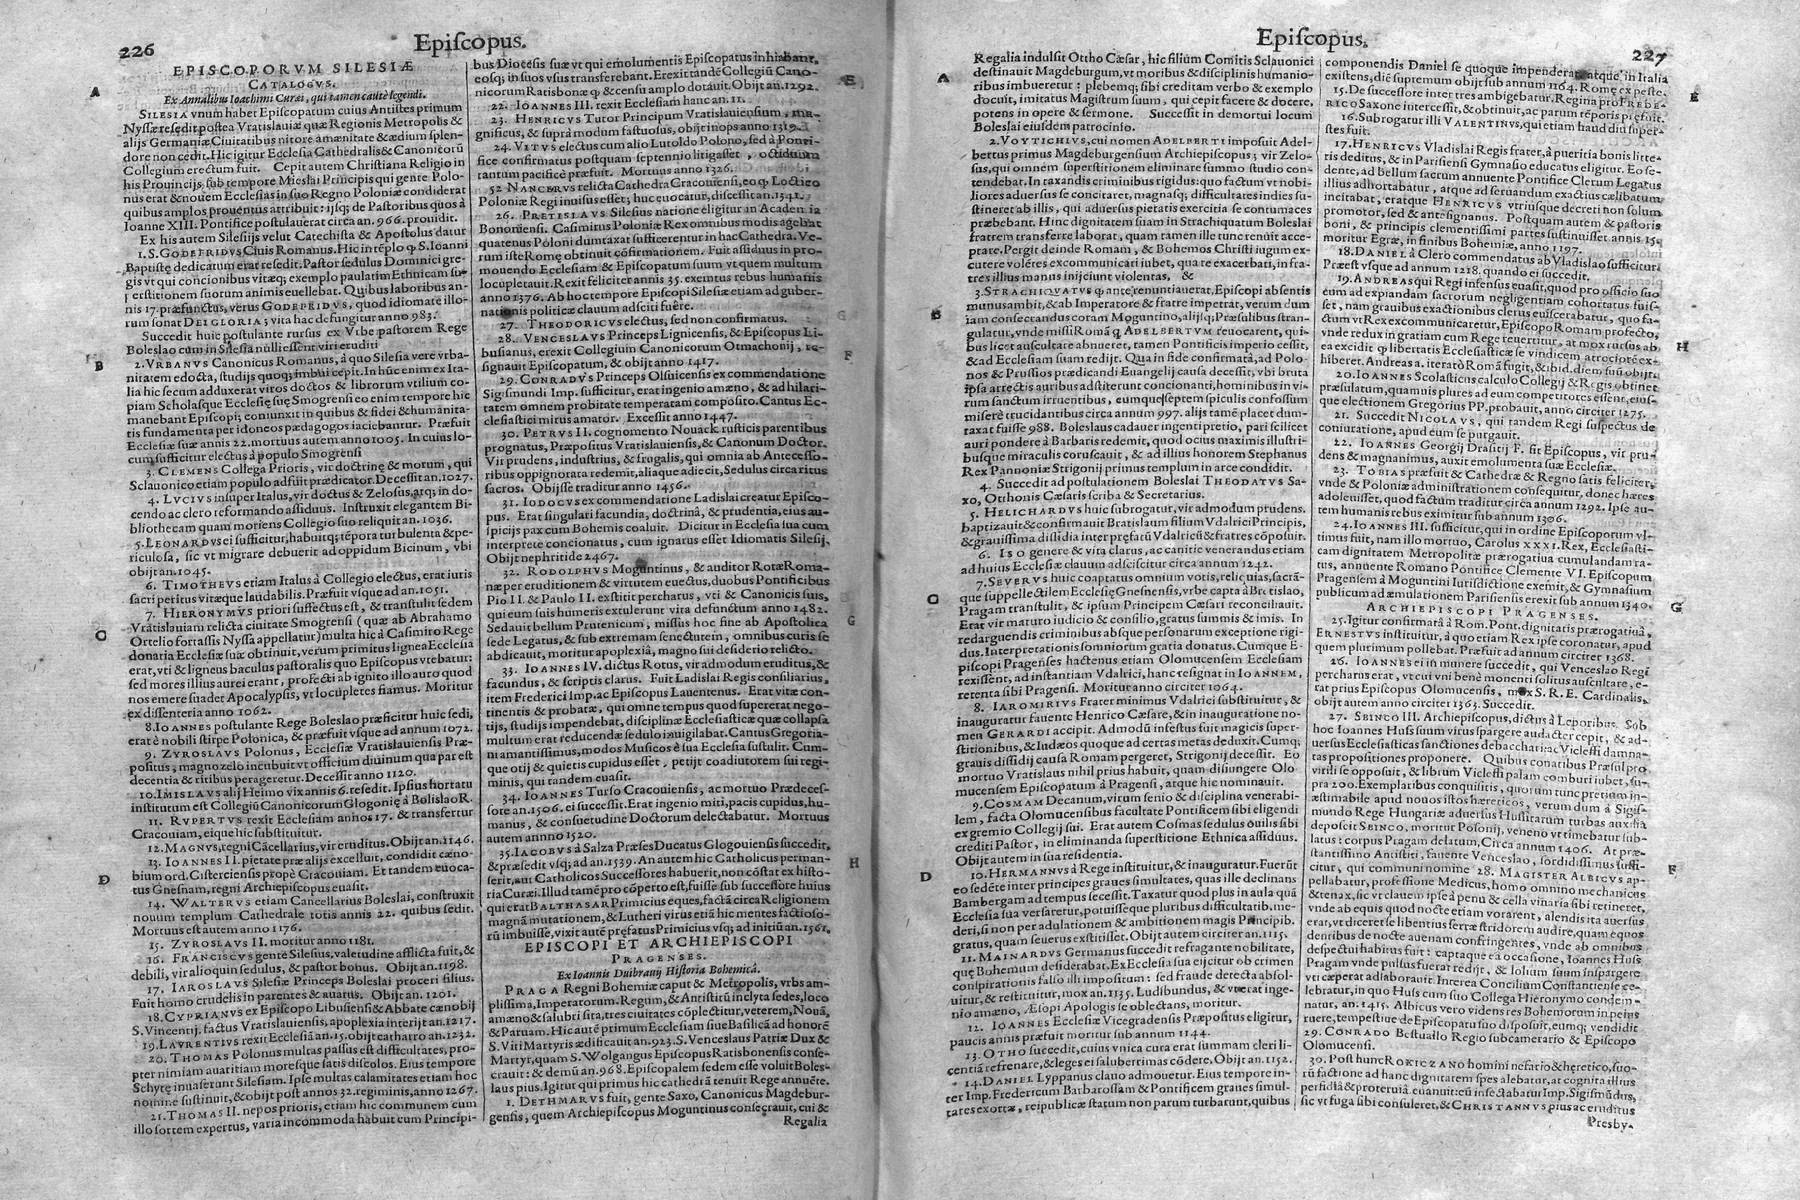 226
Episcopus.
EPISCOPORVM SILESIÆ
CATALOGVS.
Ex Annalibus Ioachimi Curæi, qui tamen cautè legendi.
SILESIA vnum habet Episcopatum cuius Antistes primum
Nyssæ resedit, postea Vratislauiæ quæ Regionis Metropolis &
alijs Germaniæ Ciuitatibus nitore amænitate & ædium splen-
dore non cedit. Hic igitur Ecclesia Cathedralis & Canonicorũ
Collegium erectum fuit. Cepit autem Christiana Religio in
his Prouincijs, sub tempore Mieslai Principis qui gente Polo-
nus erat & nouem Ecclesias in suo Regno Poloniæ condiderat
quibus amplos prouentus attribuit: ijsq; de Pastoribus quos à
Ioanne XIII. Pontifice postulauerat circa an. 966. prouidit.
Ex his autem Silesijs velut Catechista & Apostolus datur
1. S. GODEFRIDVS Ciuis Romanus. Hic in tẽplo ꝙ S. Ioanni
Baptistę dedicatum erat resedit. Pastor sedulus Dominici gre-
gis vt qui concionibus vitæq; exemplo paulatim Ethnicam su-
perstitionem suorum animis euellebat. Quibus laboribus an-
nis 17. præfunctus, verus GODEFRIDVS, quod idiomate illo-
rum sonat DEI GLORIA; vita hac defungitur anno 983.
Succedit huic postulante rursus ex Vrbe pastorem Rege
Boleslao cum in Silesia nulli essent viri eruditi
2. VRBANVS Canonicus Romanus, à quo Silesia vere vrba-
nitatem edocta, studijs quoq; imbui cepit. In hũc enim ex Ita-
lia hic secum adduxerat viros doctos & librorum vtilium co-
piam Scholasque Ecclesię suę Smogrensi eo enim tempore hic
manebant Episcopi, coniunxit in quibus & fidei & humanita-
tis fundamenta per idoneos pædagogos iaciebantur. Præfuit
Ecclesiæ suæ annis 22. mortuus autem anno 1005. In cuius lo-
cum sufficitur electus à populo Smogrensi
3. CLEMENS Collega Prioris, vir doctrinę & morum, qui
Sclauonico etiam populo adfuit prædicator. Decessit an. 1027.
4. LVCIVS insuper Italus, vir doctus & Zelosus, atq; in do-
cendo ac clero reformando assiduus. Instruxit elegantem Bi-
bliothecam quam moriens Collegio suo reliquit an. 1036.
5. LEONARDVS ei sufficitur, habuitq; tẽpora turbulenta & pe-
riculosa, sic vt migrare debuerit ad oppidum Bicinum, vbi
obijt an. 1045.
6. TIMOTHEVS etiam Italus à Collegio electus, erat iuris
sacri peritus vitæque laudabilis. Præfuit vsque ad an. 1051.
7. HIERONYMVS priori suffectus est, & transtulit sedem
Vratislauiam relicta ciuitate Smogrensi (quæ ab Abrahamo
Ortelio fortassis Nyssa appellatur) multa hic à Casimiro Rege
donaria Ecclesiæ suæ obtinuit, verum primitus lignea Ecclesia
erat, vti & ligneus baculus pastoralis quo Episcopus vtebatur:
sed mores illius aurei erant, profecti ab ignito illo auro quod
nos emere suadet Apocalypsis, vt locupletes fiamus. Moritur
ex dissenteria anno 1062.
8. IOANNES postulante Rege Boleslao præficitur huic sedi,
erat è nobili stirpe Polonica, & præfuit vsque ad annum 1072.
9. ZYROSLAVS Polonus, Ecclesiæ Vratislauiensis Præ-
positus, magno zelo incubuit vt officium diuinum qua par est
decentia & ritibus perageretur. Decessit anno 1120.
10. IMISLAVS alij Heimo vix annis 6. resedit. Ipsius hortatu
institutum est Collegiũ Canonicorum Glogonię à Bolislao R.
11. RVPERTVS rexit Ecclesiam annos 17. & transfertur
Cracouiam, eique hic substituitur.
12. MAGNVS, regni Cãcellarius, vir eruditus. Obijt an. 1146.
13. IOANNES II. pietate præ alijs excelluit, condidit cæno-
bium ord. Cisterciensis propè Cracouiam. Et tandem euoca-
tus Gnesnam, regni Archiepiscopus euasit.
14. WALTERVS etiam Cancellarius Boleslai, construxit
nouum templum Cathedrale totis annis 22. quibus sedit.
Mortuus est autem anno 1176.
15. ZYROSLAVS II. moritur anno 1181.
16. FRANCISCVS gente Silesius, valetudine afflicta fuit, &
debili, vir alioquin sedulus, & pastor bonus. Obijt an. 1198.
17. IAROSLAVS Silesiæ Princeps Boleslai proceri filius.
Fuit homo crudelis in parentes & auarus. Obijt an. 1201.
18. CYPRIANVS ex Episcopo Libusiensi & Abbate cænobij
S. Vincentij. factus Vratislauiensis, apoplexia interijt an. 1217.
19. LAVRENTIVS rexit Ecclesiã an. 15. obijt catharro an. 1232.
20. THOMAS Polonus multas passus est difficultates, pro-
pter nimiam auaritiam moresque satis discolos. Eius tempore
Schytę inuaserunt Silesiam. Ipse multas calamitates etiam hoc
nomine sustinuit, & obijt post annos 32. regiminis, anno 1267.
21. THOMAS II. nepos prioris, etiam hic communem cum
illo sortem expertus, varia incommoda habuit cum Principi-
A
B
C
D
bus Diocesis suæ vt qui emolumentis Episcopatus inhiabant,
eosq; in suos vsus transferebant. Erexit tandẽ Collegiũ Cano-
nicorum Ratisbonæ ꝙ & censu amplo dotauit. Obijt an. 1292.
22. IOANNES III. rexit Ecclesiam hanc an. 11.
23. HENRICVS Tutor Principum Vratislauiensium, ma-
gnificus, & suprà modum fastuosus, obijt inops anno 1319.
24. VITVS electus cum alio Lutoldo Polono, sed à Ponti-
fice confirmatus postquam septennio litigasset, occiduum
tantum pacificè præfuit. Mortuus anno 1326.
52 NANCERVS relicta Cathedra Cracouiensi, eo ꝙ Loctico
Poloniæ Regi inuisus esset; huc quocatur, discessit an. 1341.
26. PRETISLAVS Silesius natione eligitur in Academia
Bononiensi. Casimirus Poloniæ Rex omnibus modis agebat
quatenus Poloni dumtaxat sufficerentur in hac Cathedra. Ve-
rum iste Romę obtinuit cõfirmationem. Fuit assiduus in pro-
mouendo Ecclesiam & Episcopatum suum vt quem multum
locupletauit. Rexit feliciter annis 35. exemtus rebus humanis
anno 1376. Ab hoc tempore Episcopi Silesiæ etiam ad guber-
nationis politicæ clauum adsciti fuêre.
27. THEODORICVS electus, sed non confirmatus.
28. VENCESLAVS Princeps Lignicensis, & Episcopus Li-
busianus, erexit Collegium Canonicorum Otmachonij, re-
signauit Episcopatum, & obijt anno 1417.
29. CONRADVS Princeps Olsuicensis ex commendatione
Sigismundi Imp. sufficitur, erat ingenio amæno, & ad hilari-
tatem omnem probitate temperatam composito. Cantus Ec-
clesiastici mirus amator. Excessit anno 1447.
30. PETRVS II. cognomento Nouack rusticis parentibus
prognatus, Præpositus Vratislauiensis, & Canonum Doctor.
Vir prudens, industrius, & frugalis, qui omnia ab Antecesso-
ribus oppignorata redemit, aliaque adiecit, Sedulus circa ritus
sacros. Obijsse traditur anno 1456.
31. IODOCVS ex commendatione Ladislai creatur Episco-
pus. Erat singulari facundia, doctrinâ, & prudentia, eius au-
spicijs pax cum Bohemis coaluit. Dicitur in Ecclesia sua cum
interprete concionatus, cum ignarus esset Idiomatis Silesij.
Obijt nephritide 2467.
32. RODOLPHVS Moguntinus, & auditor Rotæ Roma-
næ per eruditionem & virtutem euectus, duobus Pontificibus
Pio II. & Paulo II. exstitit percharus, vti & Canonicis suis,
qui eum suis humeris extulerunt vita defunctum anno 1482.
Sedauit bellum Prutenicum, missus hoc fine ab Apostolica
sede Legatus, & sub extremam senectutem, omnibus curis se
abdicauit, moritur apoplexiâ, magno sui desiderio relicto.
33. IOANNES IV. dictus Rotus, vir admodum eruditus, &
facundus, & scriptis clarus. Fuit Ladislai Regis consiliarius,
item Frederici Imp. ac Episcopus Lauentenus. Erat vitæ con-
tinentis & probatæ, qui omne tempus quod supererat nego-
tijs, studijs impendebat, disciplinæ Ecclesiasticæ quæ collapsa
multum erat reducendæ sedulo inuigilabat. Cantus Gregoria-
ni amantissimus, modos Musicos è sua Ecclesia sustulit. Cum-
que otij & quietis cupidus esset, petijt coadiutorem sui regi-
minis, qui tandem euasit.
34. IOANNES Turso Cracouiensis, ac mortuo Prædeces-
sore an. 1506. ei successit. Erat ingenio miti, pacis cupidus, hu-
manus, & consuetudine Doctorum delectabatur. Mortuus
autem annno 1520.
35. IACOBVS à Salza Præses Ducatus Glogouiensis succedit,
& præsedit vsq; ad an. 1539. An autem hic Catholicus perman-
serit, aut Catholicos Successores habuerit, non cõstat ex histo-
ria Curæi. Illud tamẽ pro cõperto est, fuisse sub successore huius
qui erat BALTHASAR Primicius eques, factã circa Religionem
magnã mutationem, & Lutheri virus etiã hic mentes factioso-
rũ imbuisse, vixit autẽ pręfatus Primicius vsq; ad initiũ an. 1561.
EPISCOPI ET ARCHIEPISCOPI
PRAGENSES.
Ex Ioannis Duibrauij Historia Bohemicâ.
PRAGA Regni Bohemiæ caput & Metropolis, vrbs am-
plissima, Imperatorum. Regum, & Antistitũ inclyta sedes, loco
amæno & salubri sita, tres ciuitates cõplectitur, veterem, Nouã,
& Paruam. Hic autẽ primum Ecclesiam siue Basilicã ad honorẽ
S. Viti Martyris ædificauit an. 923. S. Venceslaus Patriæ Dux &
Martyr, quam S. Wolgangus Episcopus Ratisbonensis conse-
crauit: & demũ an. 968. Episcopalem sedem esse voluit Boles-
laus pius. Igitur qui primus hic cathedrã tenuit Rege annuẽte.
1. DETHMARVS fuit, gente Saxo, Canonicus Magdebur-
gensis, quem Archiepiscopus Moguntinus consecrauit, cui &
Regalia
E
F
G
H
Episcopus.
227
Regalia indulsit Ottho Cæsar, hic filium Comitis Sclauonici
destinauit Magdeburgum, vt moribus & disciplinis humanio-
ribus imbueretur: plebemq; sibi creditam verbo & exemplo
docuit, imitatus Magistrum suum, qui cepit facere & docere,
potens in opere & sermone. Successit in demortui locum
Boleslai eiusdem patrocinio.
2. VOYTICHIVS, cui nomen ADELBERTI imposuit Adel-
bertus primus Magdeburgensium Archiepiscopus; vir Zelo-
sus, qui omnem superstitionem eliminare summo studio con-
tendebat. In taxandis criminibus rigidus: quo factum vt nobi-
liores aduersus se conciraret, magnasq; difficultates indies su-
stineret ab illis, qui aduersus pietatis exercitia se contumaces
præbebant. Hinc dignitatem suam in Strachiquatum Boleslai
fratrem transferre laborat, quam tamen ille tunc tenuit acce-
ptare. Pergit deinde Romam, & Bohemos Christi iugum ex-
cutere volẽtes excommunicari iubet, qua re exacerbati, in fra-
tres illius manus inijciunt violentas. &
3. STRACHIQVATVS ꝙ ante, renuntiauerat, Episcopi absentis
munus ambit, & ab Imperatore & fratre impetrat, verum dum
iam consecrandus coram Moguntino, alijsq; Præsulibus stran-
gulatur, vnde missi Romã ꝙ ADELBERTVM reuocarent, qui-
bus licet auscultate abnueret, tamen Pontificis imperio cessit,
& ad Ecclesiam suam redijt. Qua in fide confirmatâ, ad Polo-
nos & Prussios prædicandi Euangelij causa decessit, vbi bruta
ipsa arrectis auribus adstiterunt concionanti, hominibus in vi-
rum sanctum irruentibus, eumque septem spiculis confossum
miserè trucidantibus circa annum 997. alijs tamẽ placet dum-
taxat fuisse 988. Boleslaus cadauer ingenti pretio, pari scilicet
auri pondere à Barbaris redemit, quod ocius maximis illustri-
busque miraculis coruscauit, & ad illius honorem Stephanus
Rex Pannoniæ Strigonij primus templum in arce condidit.
4. Succedit ad postulationem Boleslai THEODATVS Sa-
xo, Otthonis Cæsaris scriba & Secretarius.
5. HELICHARDVS huic subrogatur, vir admodum prudens.
baptizauit & confirmauit Bratislaum filium Vdalrici Principis,
& grauissima dissidia inter prefatũ Vdalricũ & fratres cõposuit.
6. ISO genere & vita clarus, ac canitie venerandus etiam
ad huius Ecclesiæ clauum adsciscitur circa annum 1242.
7. SEVERVS huic coaptatus omnium votis, reliquias, sacrã-
que suppellectilem Ecclesię Gnesnensis, vrbe capta à Bretislao,
Pragam transtulit, & ipsum Principem Cæsari reconciliauit.
Erat vir maturo iudicio & consilio, gratus summis & imis. In
redarguendis criminibus absque personarum exceptione rigi-
dus. Interpretationis somniorum gratia donatus. Cumque E-
piscopi Pragenses hactenus etiam Olomucensem Ecclesiam
rexissent, ad instantiam Vdalrici, hanc resignat in IOANNEM,
retenta sibi Pragensi. Moritur anno circiter 1064.
8. IAROMIRVS Frater minimus Vdalrici substituitur, &
inauguratur fauente Henrico Cæsare, & in inauguratione no-
men GERARDI accipit. Admodũ infestus fuit magicis super-
stitionibus, & Iudæos quoque ad certas metas deduxit. Cumq;
grauis dissidij causa Romam pergeret, Strigonij decessit. Eo
mortuo Vratislaus nihil prius habuit, quam disiungere Olo
mucensem Episcopatum à Pragensi, atque hic nominauit.
9. COSMAM Decanum, virum senio & disciplina venerabi-
lem, facta Olomucensibus facultate Pontificem sibi eligendi
ex gremio Collegij sui. Erat autem Cosmas sedulus ouilis sibi
crediti Pastor, in eliminanda superstitione Ethnica assiduus.
Obijt autem in sua residentia.
10. HERMANNVS à Rege instituitur, & inauguratur. Fuerũt
eo sedẽte inter principes graues simultates, quas ille declinans
Bambergam ad tempus secessit. Taxatur quod plus in aula quã
Ecclesia sua versaretur, potuisseque pluribus difficultatib. me-
deri, si non per adulationem & ambitionem magis Principib.
gratus, quam seuerus exstitisset. Obijt autem circiter an. 1115.
11. MAINARDVS Germanus succedit refragante nobilitate,
quę Bohemum desiderabat. Ex Ecclesia sua eijcitur ob crimen
conspirationis falso illi impositum: sed fraude detecta absol-
uitur, & restituitur, mox an. 1135. Ludibundus, & vt erat inge-
nio amæno, Æsopi Apologis se oblectans, moritur.
12. IOANNES Ecclesiæ Vicegradensis Præpositus eligitur,
paucis annis præfuit moritur sub anno 1144.
13. OTHO succedit, cuius vnica cura erat summam cleri li-
centiã refrenare, & leges ei saluberrimas cõdere. Obijt an. 1152.
14. DANIEL Lyppanus clauo admouetur. Eius tempore in-
ter Imp. Fredericum Barbarossam & Pontificem granes simul-
tates exortæ, reipublicæ statum non parum turbarunt, quibus
A
B
C
D
componendis Daniel se quoque impenderat, atque in Italia
existens, diẽ supremum obijt sub annum 1164. Romę ex peste.
15. De successore inter tres ambigebatur. Regina pro FREDE-
RICO Saxone intercessit, & obtinuit, ac parum tẽporis præfuit.
16. Subrogatur illi VALENTINVS, qui etiam haud diu super-
stes fuit.
17. HENRICVS Vladislai Regis frater, à pueritia bonis litte-
ris deditus, & in Parisiensi Gymnasio educatus eligitur. Eo se-
dente, ad bellum sacrum annuente Pontifice Clerum Legatus
illius adhortabatur, atque ad seruandum exactius cælibatum
incitabat, eratque HENRICVS vtriusque decreti non solum
promotor, sed & antesignanus. Postquam autem & pastoris
boni, & principis clementissimi partes sustinuisset annis 15.
moritur Egræ, in finibus Bohemiæ, anno 1197.
18. DANIEL à Clero commendatus ab Vladislao sufficitur.
Præest vsque ad annum 1218. quando ei succedit.
19. ANDREAS qui Regi infensus euasit, quod pro officio suo
eum ad expiandam sacrorum negligentiam cohortatus fuis-
set, nam grauibus exactionibus clerus euiscerabatur, quo fa-
ctum vt Rex excommunicaretur, Episcopo Romam profecto,
vnde redux in gratiam cum Rege reuertitur, at mox rursus ab
ea excidit ꝙ libertatis Ecclesiasticæ se vindicem atrociptè ex-
hiberet. Andreas a. iteratò Romã fugit, & ibid. diem suũ obijt.
20. IOANNES Scolasticus calculo Collegij & Regis obtinet
præsulatum, quamuis plures ad eum competitores essent, eius-
que electionem Gregorius PP. probauit, anno circiter 1275.
21. Succedit NICOLAVS, qui tandem Regi suspectus de
coniuratione, apud eum se purgauit.
22. IOANNES Georgij Drasitij F. fit Episcopus, vir pru-
dens & magnanimus, auxit emolumenta suæ Ecclesiæ.
23. TOBIAS præfuit & Cathedræ & Regno satis feliciter,
vnde & Poloniæ administrationem consequitur, donec hæres
adoleuisset, quod factum traditur circa annum 1292. Ipse au-
tem humanis rebus eximitur sub annum 1306.
24. IOANNES III. sufficitur, qui in ordine Episcoporum vl-
timus fuit, nam illo mortuo, Carolus XXXI. Rex, Ecclesiasti-
cam dignitatem Metropolitæ prærogatiua cumulandam ra-
tus, annuente Romano Pontifice Clemente VI. Episcopum
Pragensem à Moguntini Iurisdictione exemit, & Gymnasium
publicum ad æmulationem Parisiensis erexit sub annum 1340.
ARCHIEPISCOPI PRAGENSES.
25. Igitur confirmatâ à Rom. Pont. dignitatis prærogatiuâ,
ERNESTVS instituitur, à quo etiam Rex ipse coronatur, apud
quem plurimum pollebat. Præfuit ad annum circiter 1368.
26. IOANNES ei in munere succedit, qui Venceslao Regi
percharus erat, vt cui vni benè monenti solitus auscultare, e-
rat prius Episcopus Olomucensis, mox S. R. E. Cardinalis,
obijt autem anno circiter 1363. Succedit.
27. SBINCO III. Archiepiscopus, dictus à Leporibus. Sob
hoc Ioannes Huss suum virus spargere audacter cepit, & ad-
uersus Ecclesiasticas sanctiones debacchari: ac Vicleffi damna-
tas propositiones proponere. Quibus conatibus Præsul pro
virili se opposuit, & librum Vicleffi palam comburi iubet, su-
pra 200. Exemplaribus conquisitis, quorum tunc pretium in-
æstimabile apud nouos istos hæreticos, verum dum à Sigis-
mundo Rege Hungariæ aduersus Hussitarum turbas auxilia
deposcit SBINCO, moritur Posonij, veneno vt timebatur sub-
latus: corpus Pragam delatum, Circa annum 1406. At præ-
stantissimo Antistiti, fauente Venceslao, sordidissimus suffi-
citur, qui communi nomine 28. MAGISTER ALBICVS ap-
pellabatur, professione Medicus, homo omnino mechanicus
& tenax, sic vt clauem ipse à penu & cella vinaria sibi retineret,
vnde ab equis quod nocte etiam vorarent, alendis ita auersus
erat, vt diceret se libentius serræ stridorem audire, quam equos
dentibus de nocte auenam confringentes, vnde ab omnibus
despectui habitus fuit: captaque ea occasione, Ioannes Huss
Pragam vnde pulsus fuerat redijt, & lolium suum inspargere
vti cæperat adlaborauit. Interea Concilium Constantiense ce-
lebratur, in quo Huss cum suo Collega Hieronymo condem-
natur, an. 1415. Albicus vero videns res Bohemorum in peius
ruere, tempestiue de Episcopatu suo disposuit, eumq; vendidit
29. CONRADO Bestuallo Regio subcamerario & Episcopo
Olomucensi.
30. Post hunc ROKICZANO homini nefario & hęretico, suo-
rũ factione ad hanc dignitatem spes alebatur, at cognita illius
perfidiâ & proteruiâ euanuit: eũ insectabatur Imp. Sigismũdus,
sic vt fuga sibi consuleret, & CHRISTANNVS pius ac eruditus
Presby-
E
H
G
F